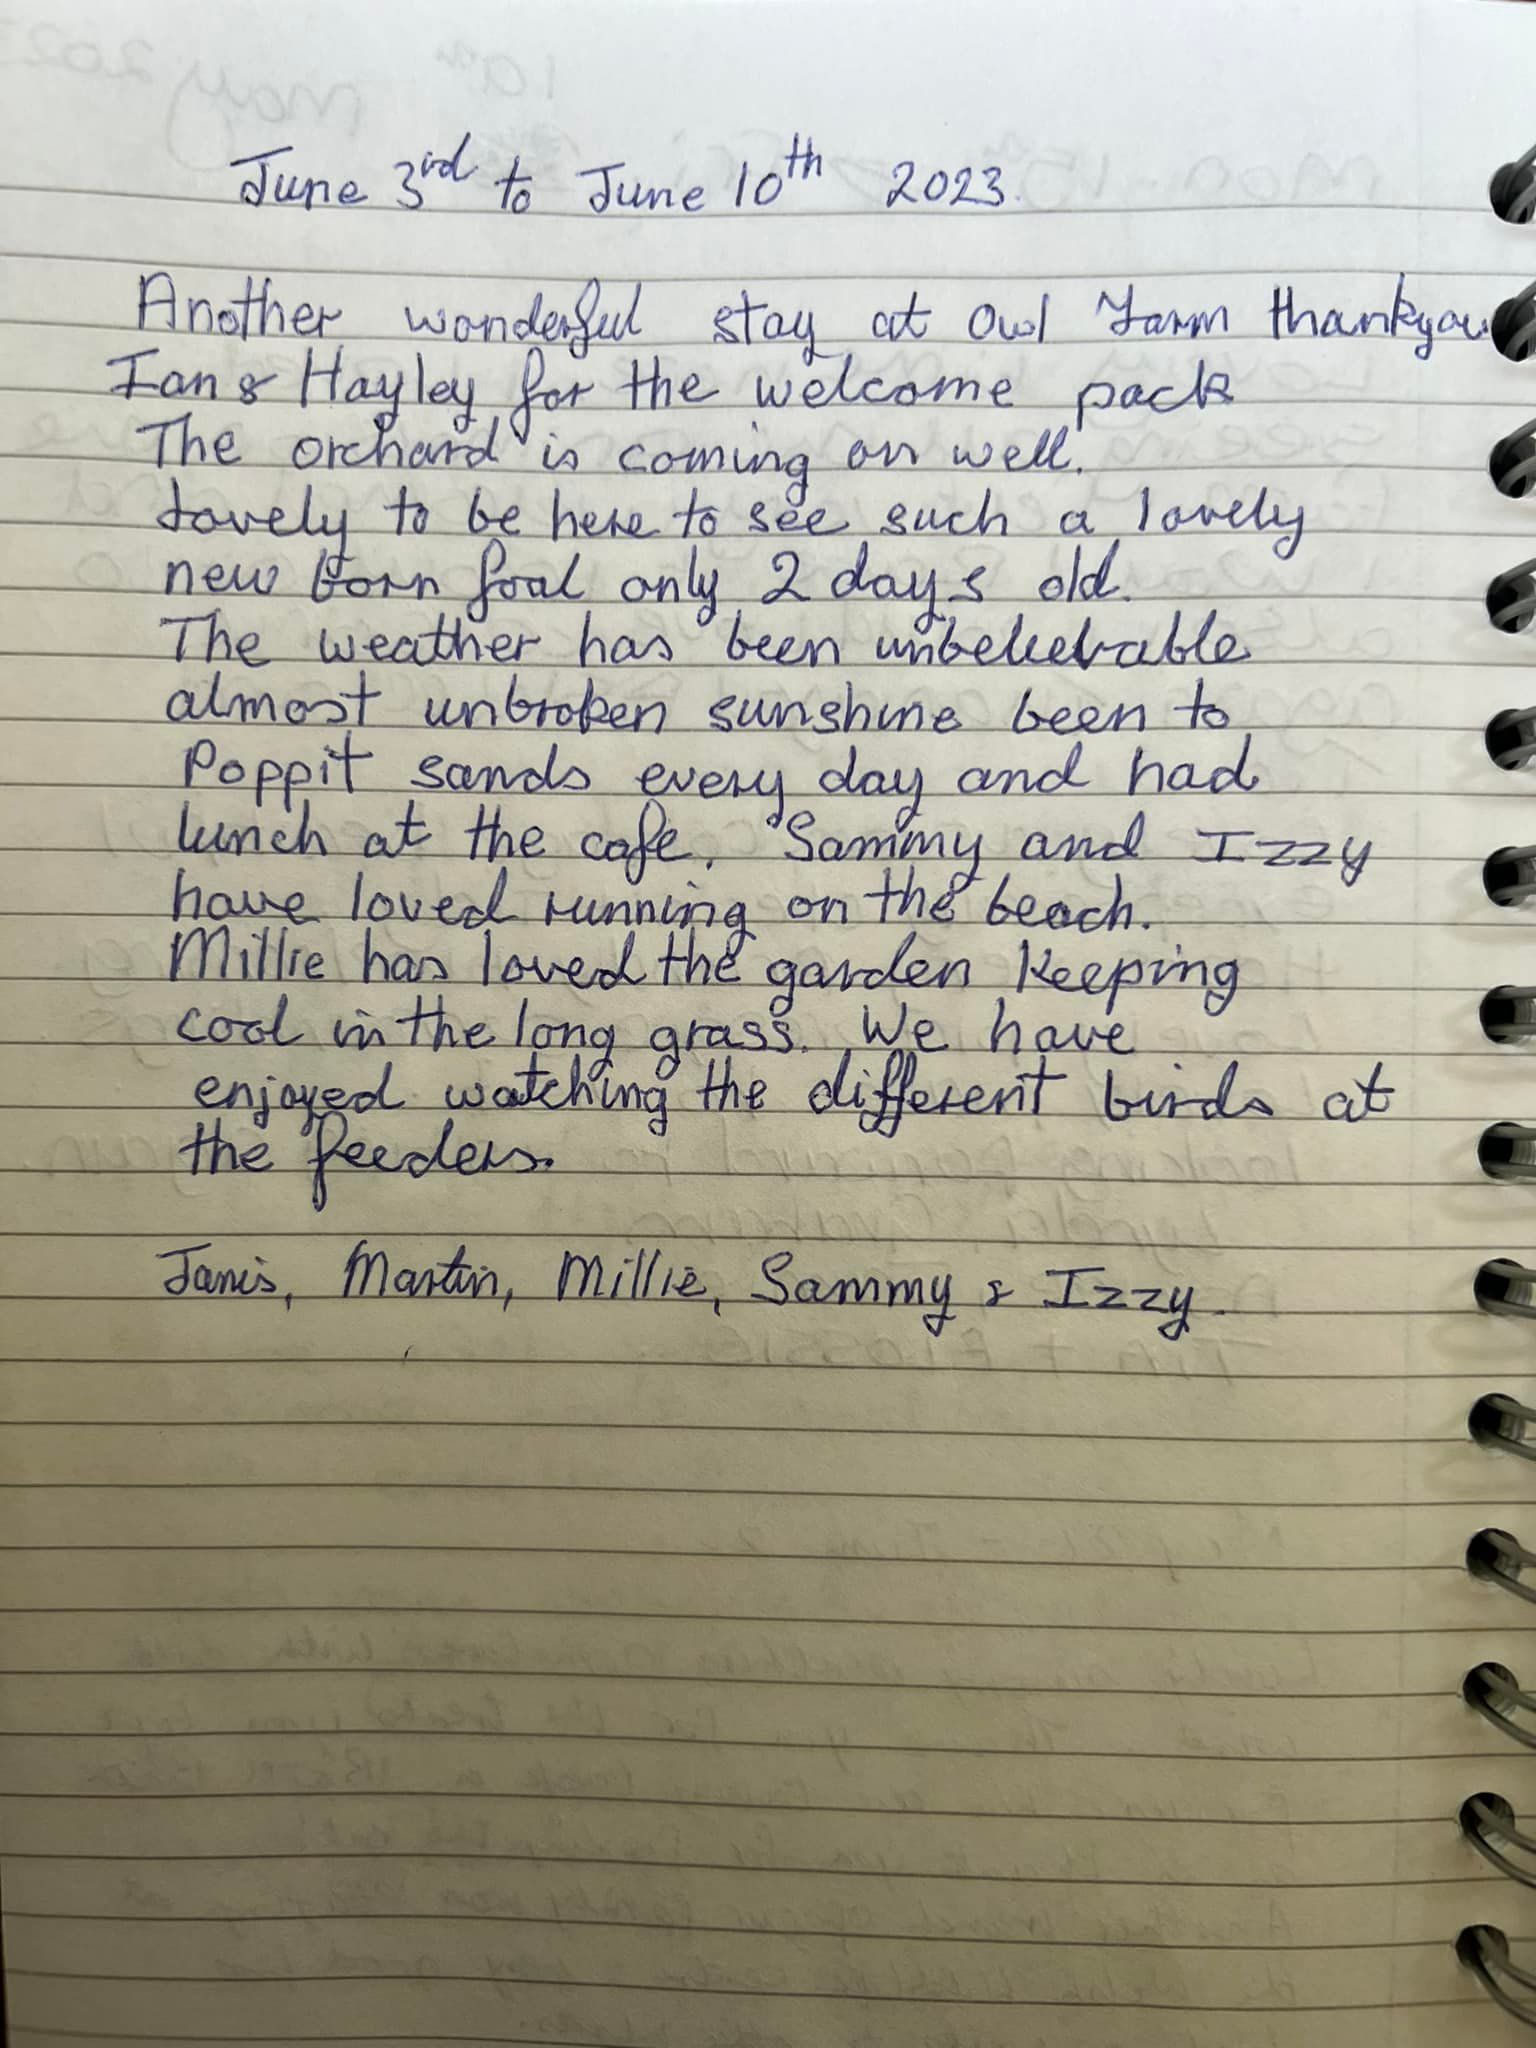 June 3rd to June 10th 2023.
Another wonderful stay at Owl Farm thankyou
Ian & Hayley for the welcome pack
The orchard is coming on well.
Lovely to be here to see such a lovely
new born foal only 2 days old.
The weather has been unbelievable
almost unbroken sunshine been to
Poppit sands every day and had
lunch at the cafe. Sammy and Izzy
have loved running on the beach.
Millie has loved the garden keeping
cool in the long grass. We have
enjoyed watching the different birds at
the feeders.
Janis, Martin, Millie, Sammy & Izzy.